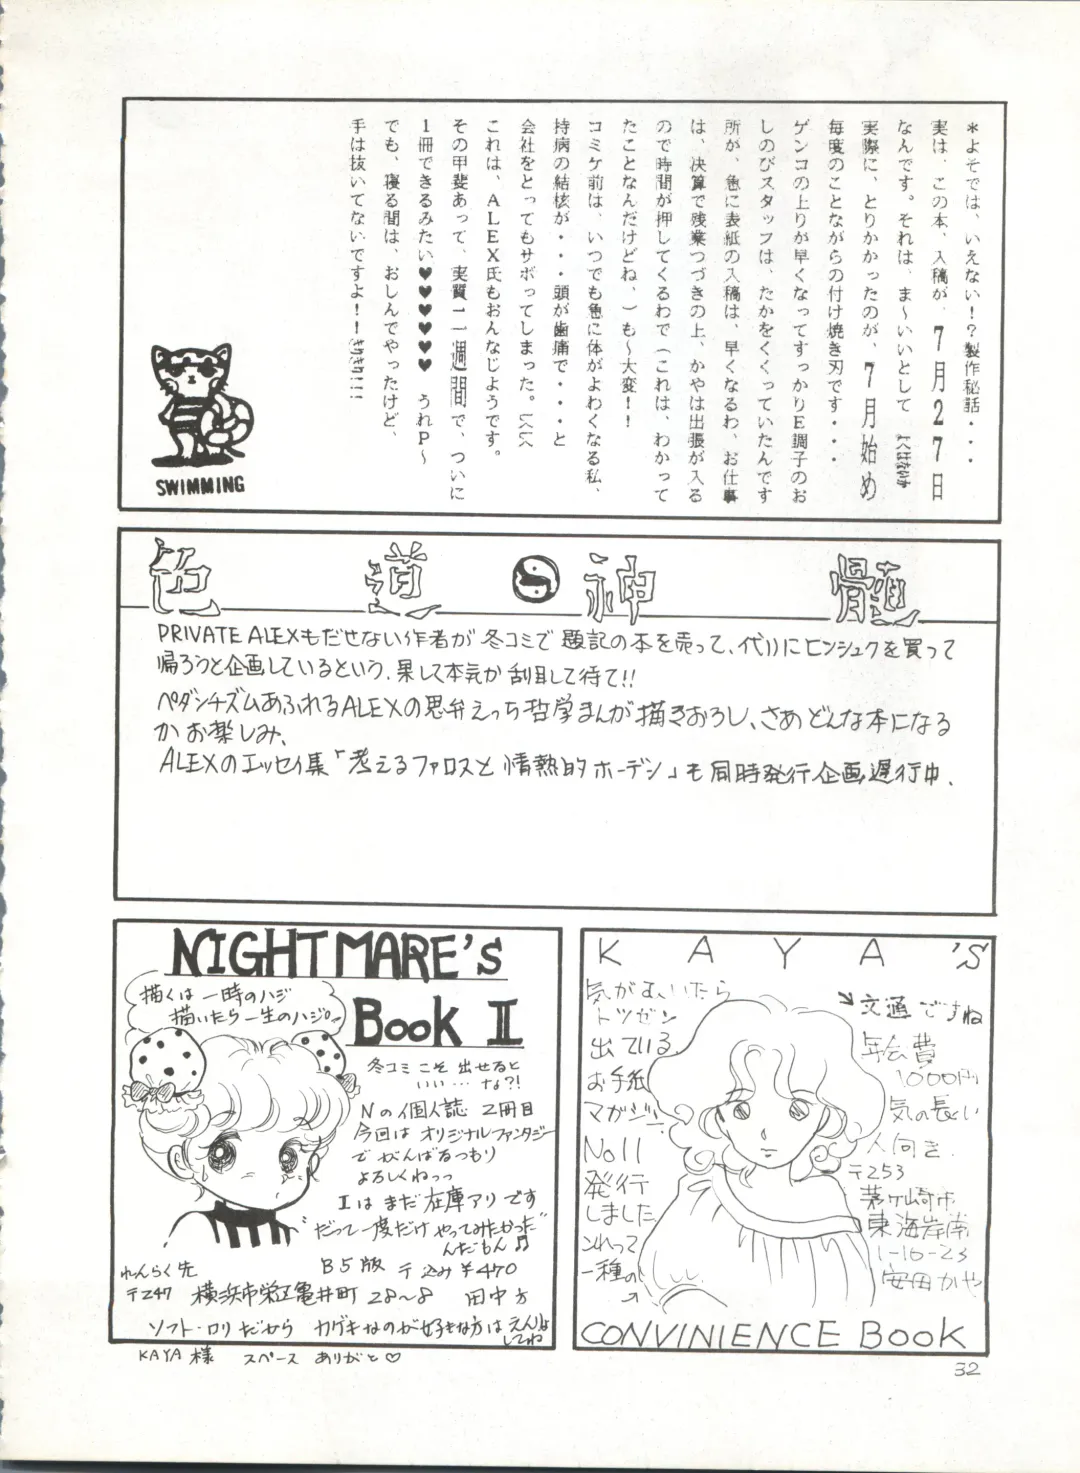 *よそでは、いえない!?製作秘話・・・
実は、この本、入稿が、7月27日
なんです。それは、ま～いいとして
実際に、とりかかったのが、7月始め
毎度のことながらの付け焼き刃です・・・
ゲンコの上りが早くなってすっかりE調子のお
しのびスタッフは、たかをくくっていたんです
所が、急に表紙の入稿は、早くなるわ、お仕事
は、決算で残業つづきの上、かやは出張が入る
ので時間が押してくるわで(これは、わかって
たことなんだけどね、)も～大変!!
コミケ前は、いつでも急に体がよわくなる私、
持病の結核が・・・頭が歯痛で・・・と
会社をとってもサボってしまった。
これは、ALEX氏もおんなじようです。
その甲斐あって、実質二週間で、ついに
1冊できるみたい♥♥♥♥♥♥ うれP～
でも、寝る間は、おしんでやったけど、
手は抜いてないですよ!!
SWIMMING
色道☯神髄
PRIVATE ALEXもだせない作者が冬コミで題記の本を売って、代りにヒンシュクを買って
帰ろうと企画しているという、果して本気か刮目して待て!!
ペダンチズムあふれるALEXの思弁えっち哲学まんが描きおろし、さあどんな本になる
かお楽しみ、
ALEXのエッセイ集「考えるファロスと情熱的ホーデン」も同時発行企画遅行中、
NIGHTMARE'S
Book II
描くは一時のハジ
描いたら一生のハジ。
冬コミこそ出せると
いい…な?!
Nの個人誌 2冊目
今回はオリジナルファンタジー
でがんばるつもり
よろしくねっっ
Iはまだ在庫アリです
"だって一度だけやってみたかった"
んだもん♫
B5版 〒込み¥470
れんらく先
〒247 横浜市栄区亀井町28～8 田中方
ソフト・ロリだから カゲキなのが好きな方はえんりょ
してね
KAYA様 スペース ありがと♡
KAYA'S
気がむいたら
トツゼン
出ている
お手紙
マガジン
No11
発行
しました
これって
一種の
文通ですね
年会費
1000円
気の長い
人向き.
〒253
茅ヶ崎市
東海岸南
1-16-23
安田かや
CONVINIENCE Book
32